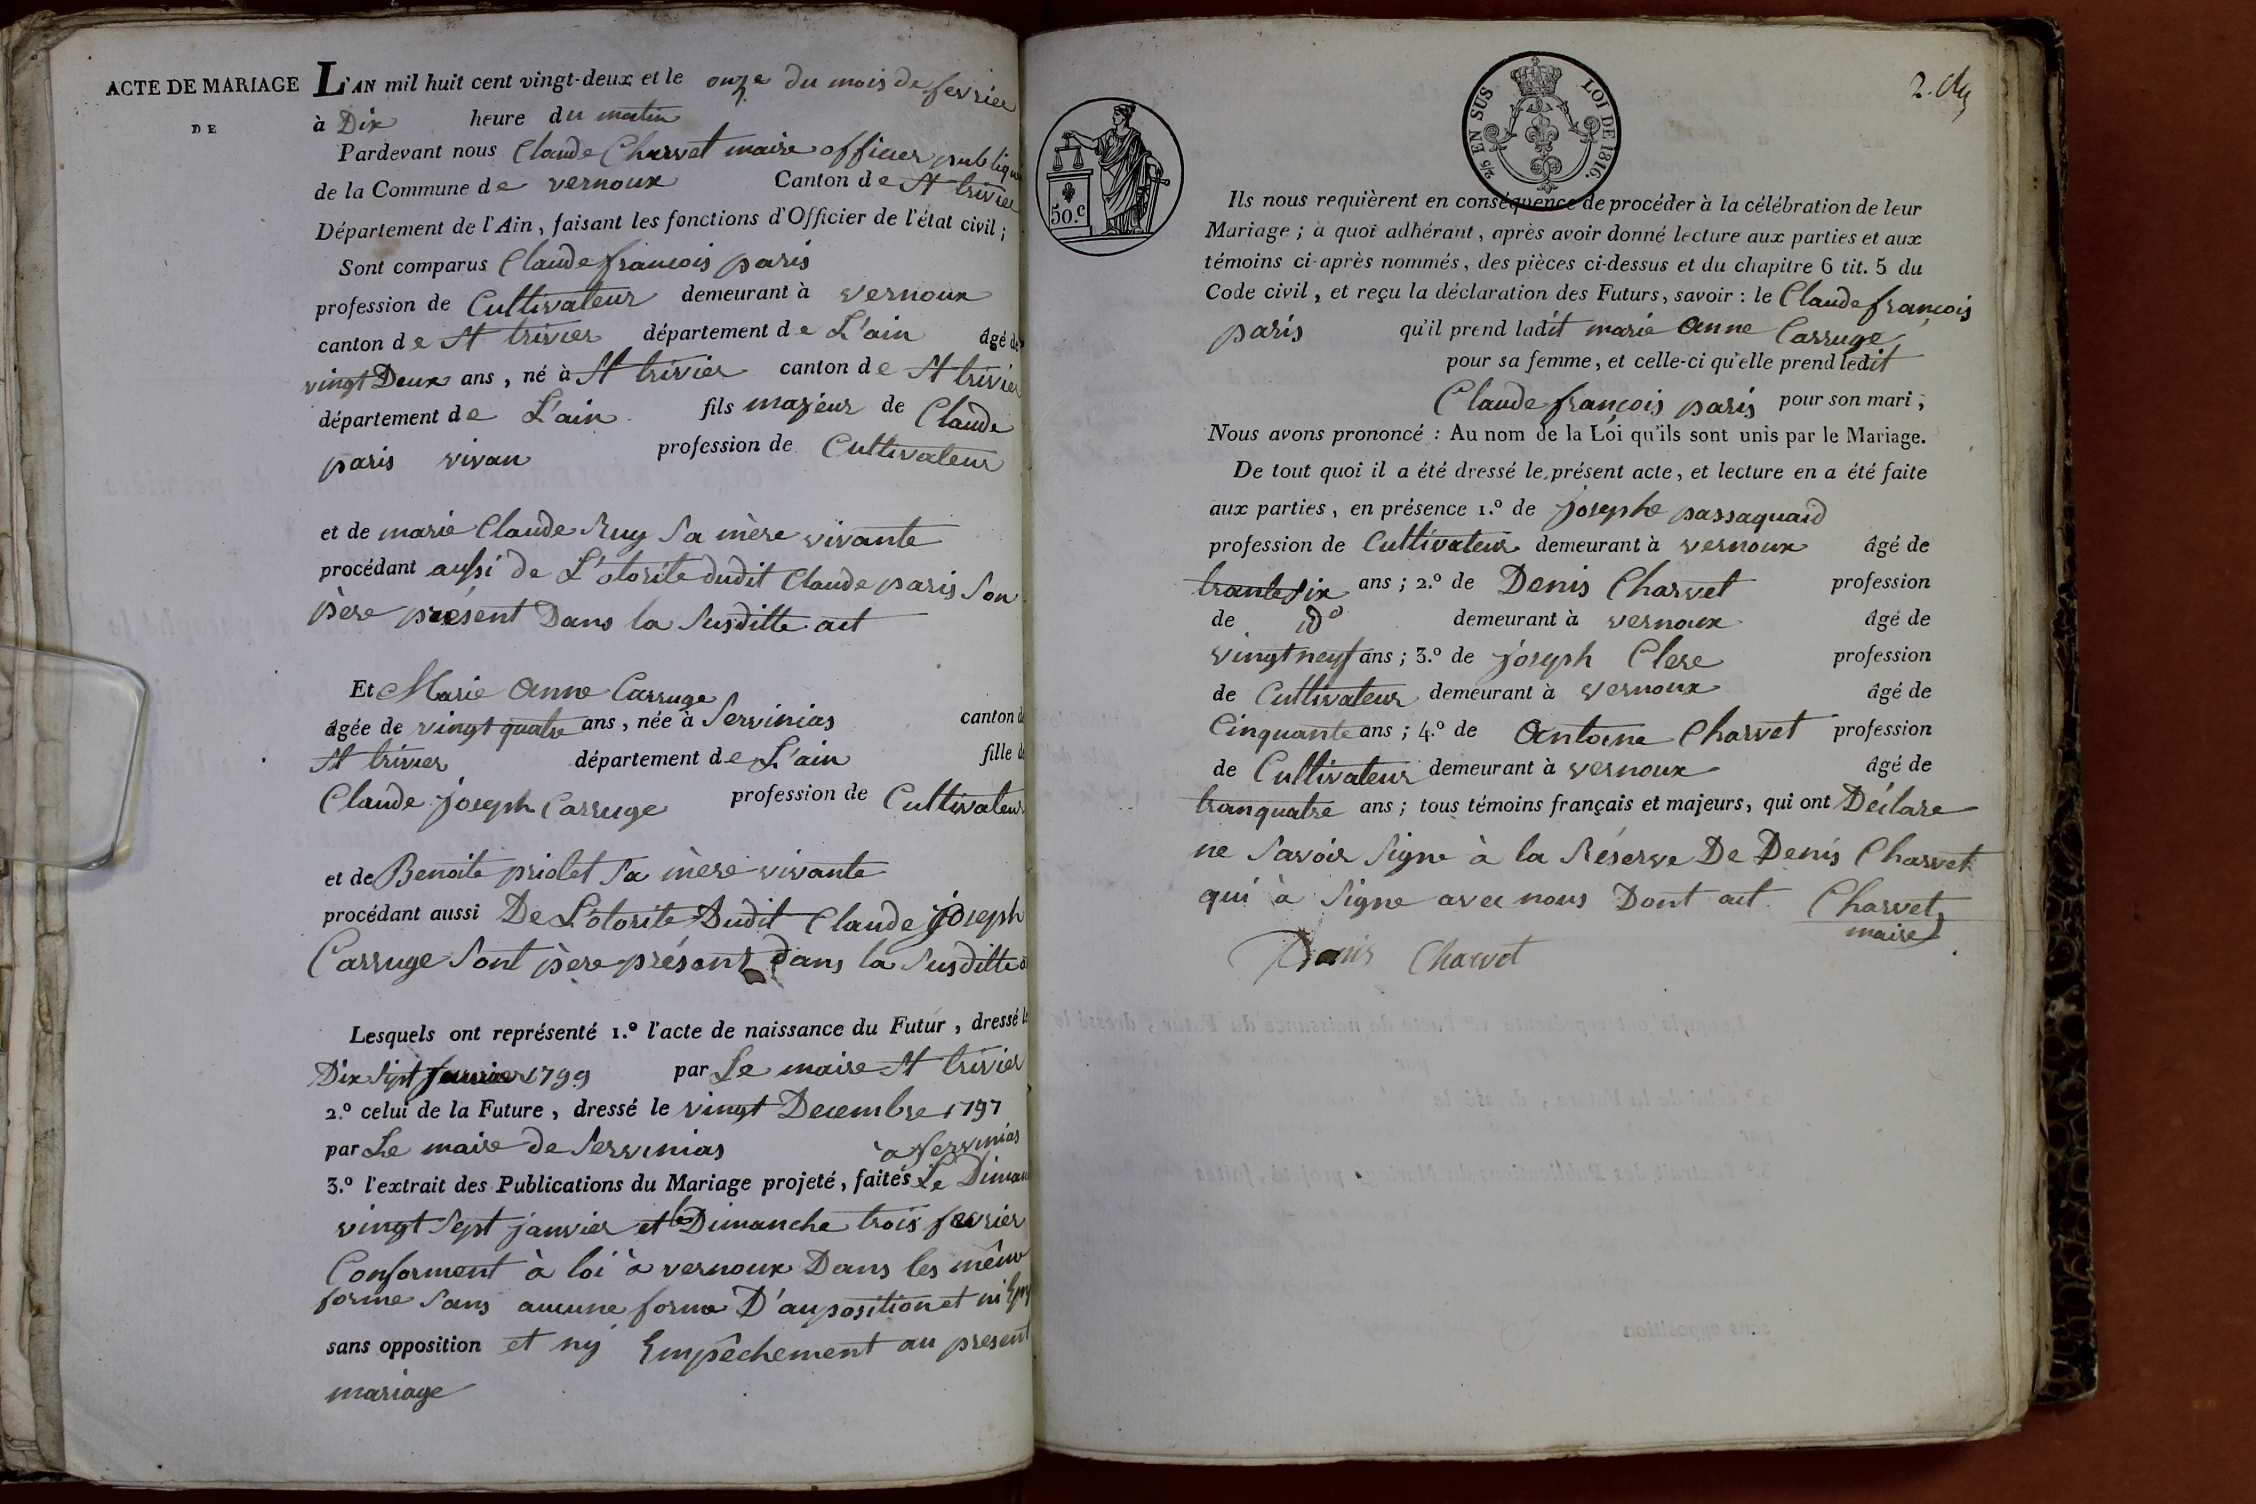 ACTE DE MARIAGE
DE
L'AN mil huit cent vingt-deux et le onze du mois de fevrier
à Dix heure du matin
Pardevant nous Claude Charvet maire officier publique
de la Commune de vernoux Canton de St trivier
Département de l'Ain, faisant les fonctions d'Officier de l'état civil;
Sont comparus Claude françois paris
profession de Cultivateur demeurant à vernoux
canton de St trivier département de L'ain âgé de
vingt Deux ans, né à St trivier canton de St trivier
département de L'ain fils majeur de Claude
paris vivan profession de Cultivateur
et de marie Claude Ruy Sa mère vivante
procédant aussi de L'otorite dudit Claude paris Son
père présent Dans la Susditte act
Et Marie Anne Carruge
âgée de vingt quatre ans, née à Servinias canton de
St trivier département de L'ain fille de
Claude joseph Carruge profession de Cultivateur
et de Benoite priolet Sa mère vivante
procédant aussi De L'otorite Dudit Claude joseph
Carruge Sont père présent dans la Susditte
Lesquels ont représenté 1.º l'acte de naissance du Futur, dressé le
Dix Sept 1799 par Le maire St trivier
2.º celui de la Future, dressé le vingt Decembre 1797
par Le maire de Servinias a Servinias
3.º l'extrait des Publications du Mariage projeté, faites Le Diman
vingt Sept janvier et le Dimanche trois fevrier
Conforment à loi à vernoux Dans les même
forme Sans aucune forme D'auposition et ni
sans opposition et ny Empêchement au present
mariage
50.c
2/5 EN SUS LOI DE 1816.
Ils nous requièrent en conséquence de procéder à la célébration de leur
Mariage; à quoi adhérant, après avoir donné lecture aux parties et aux
témoins ci-après nommés, des pièces ci-dessus et du chapitre 6 tit. 5 du
Code civil, et reçu la déclaration des Futurs, savoir: le Claude françois
paris qu'il prend ladit marie anne Carruge
pour sa femme, et celle-ci qu'elle prend ledit
Claude françois paris pour son mari;
Nous avons prononcé: Au nom de la Loi qu'ils sont unis par le Mariage.
De tout quoi il a été dressé le présent acte, et lecture en a été faite
aux parties, en présence 1.º de josephe passaquaid
profession de Cultivateur demeurant à vernoux âgé de
trante Six ans; 2.º de Denis Charvet profession
de ido demeurant à vernoux âgé de
vingt neuf ans; 3.º de joseph Clere profession
de Cultivateur demeurant à vernoux âgé de
Cinquante ans; 4.º de Antoine Charvet profession
de Cultivateur demeurant à vernoux âgé de
tranquatre ans; tous témoins français et majeurs, qui ont Déclare
ne Savoir Signe à la Réserve De Denis Charvet
qui à Signe avec nous Dont act Charvet
maire
Denis Charvet